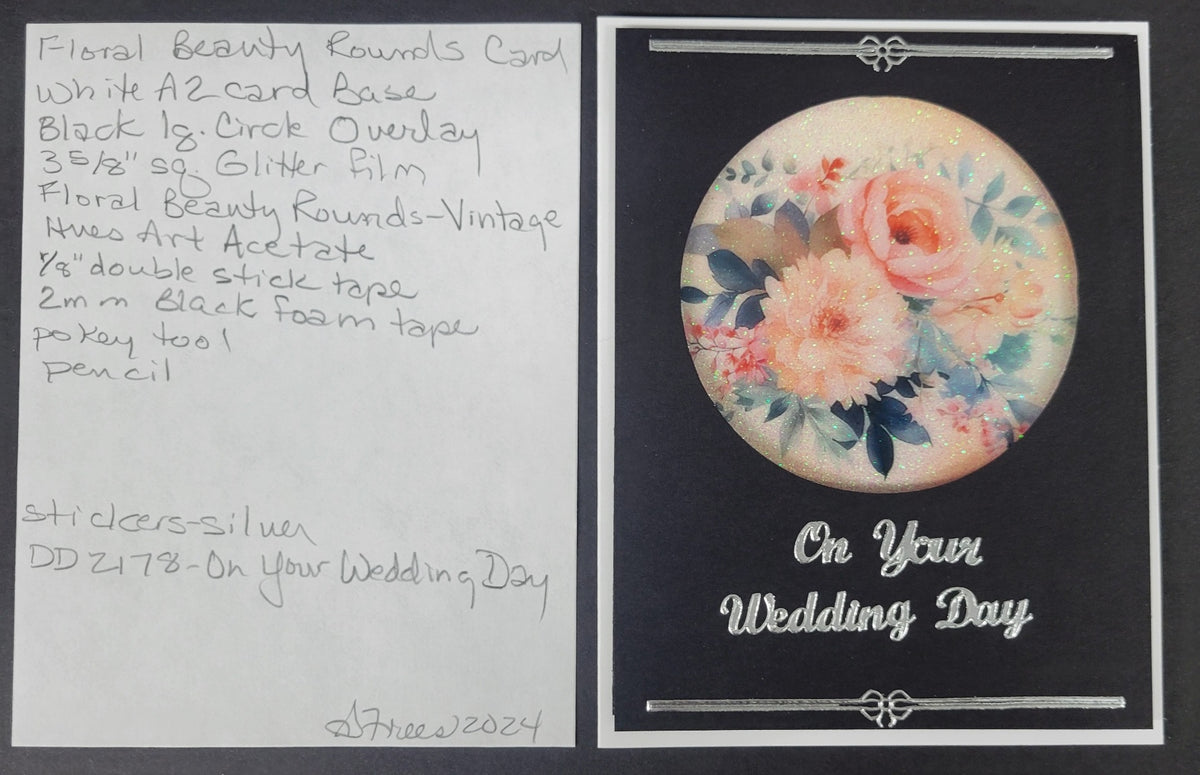 Floral Beauty Rounds Card
White A2 card Base
Black lg. Circle Overlay
3 5/8" sq. Glitter film
Floral Beauty Rounds-Vintage
Hues Art Acetate
7/8" double stick tape
2mm Black foam tape
pokey tool
pencil
stickers-silver
DD2178-On Your Wedding Day
SFrees 2024
On Your
Wedding Day